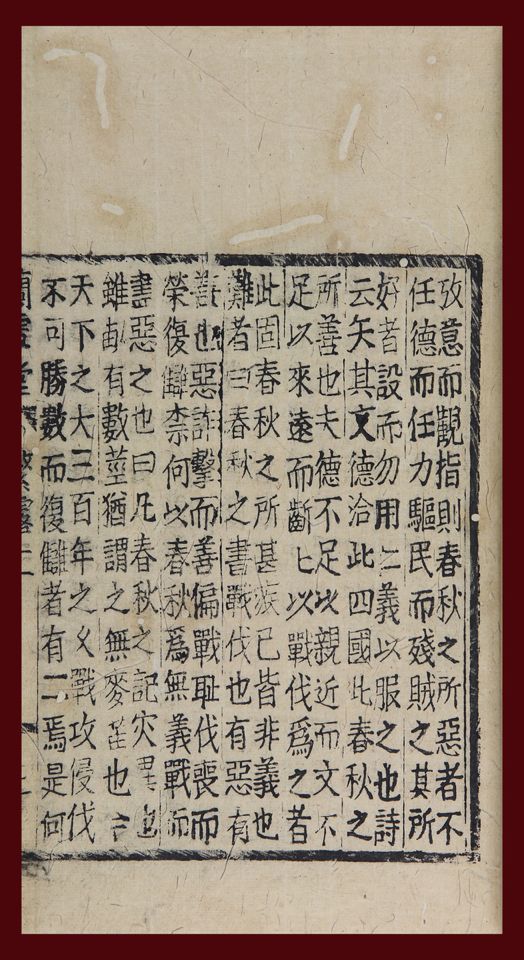 攷意而觀指則春秋之所惡者不
任德而任力驅民而殘賊之其所
好者設而勿用仁義以服之也詩
云矢其文德洽此四國此春秋之
所善也夫德不足以親近而文不
足以來遠而斷匕以戰伐爲之者
此固春秋之所甚疾已皆非義也
難者曰春秋之書戰伐也有惡有
善也惡詐擊而善偏戰耻伐喪而
榮復讎柰何以春秋爲無義戰而
盡惡之也曰凡春秋之記灾異也
雖畝有數莖猶謂之無麥苗也
天下之大三百年之久戰攻侵伐
不可勝數而復讎者有二焉是何
蘭雪堂